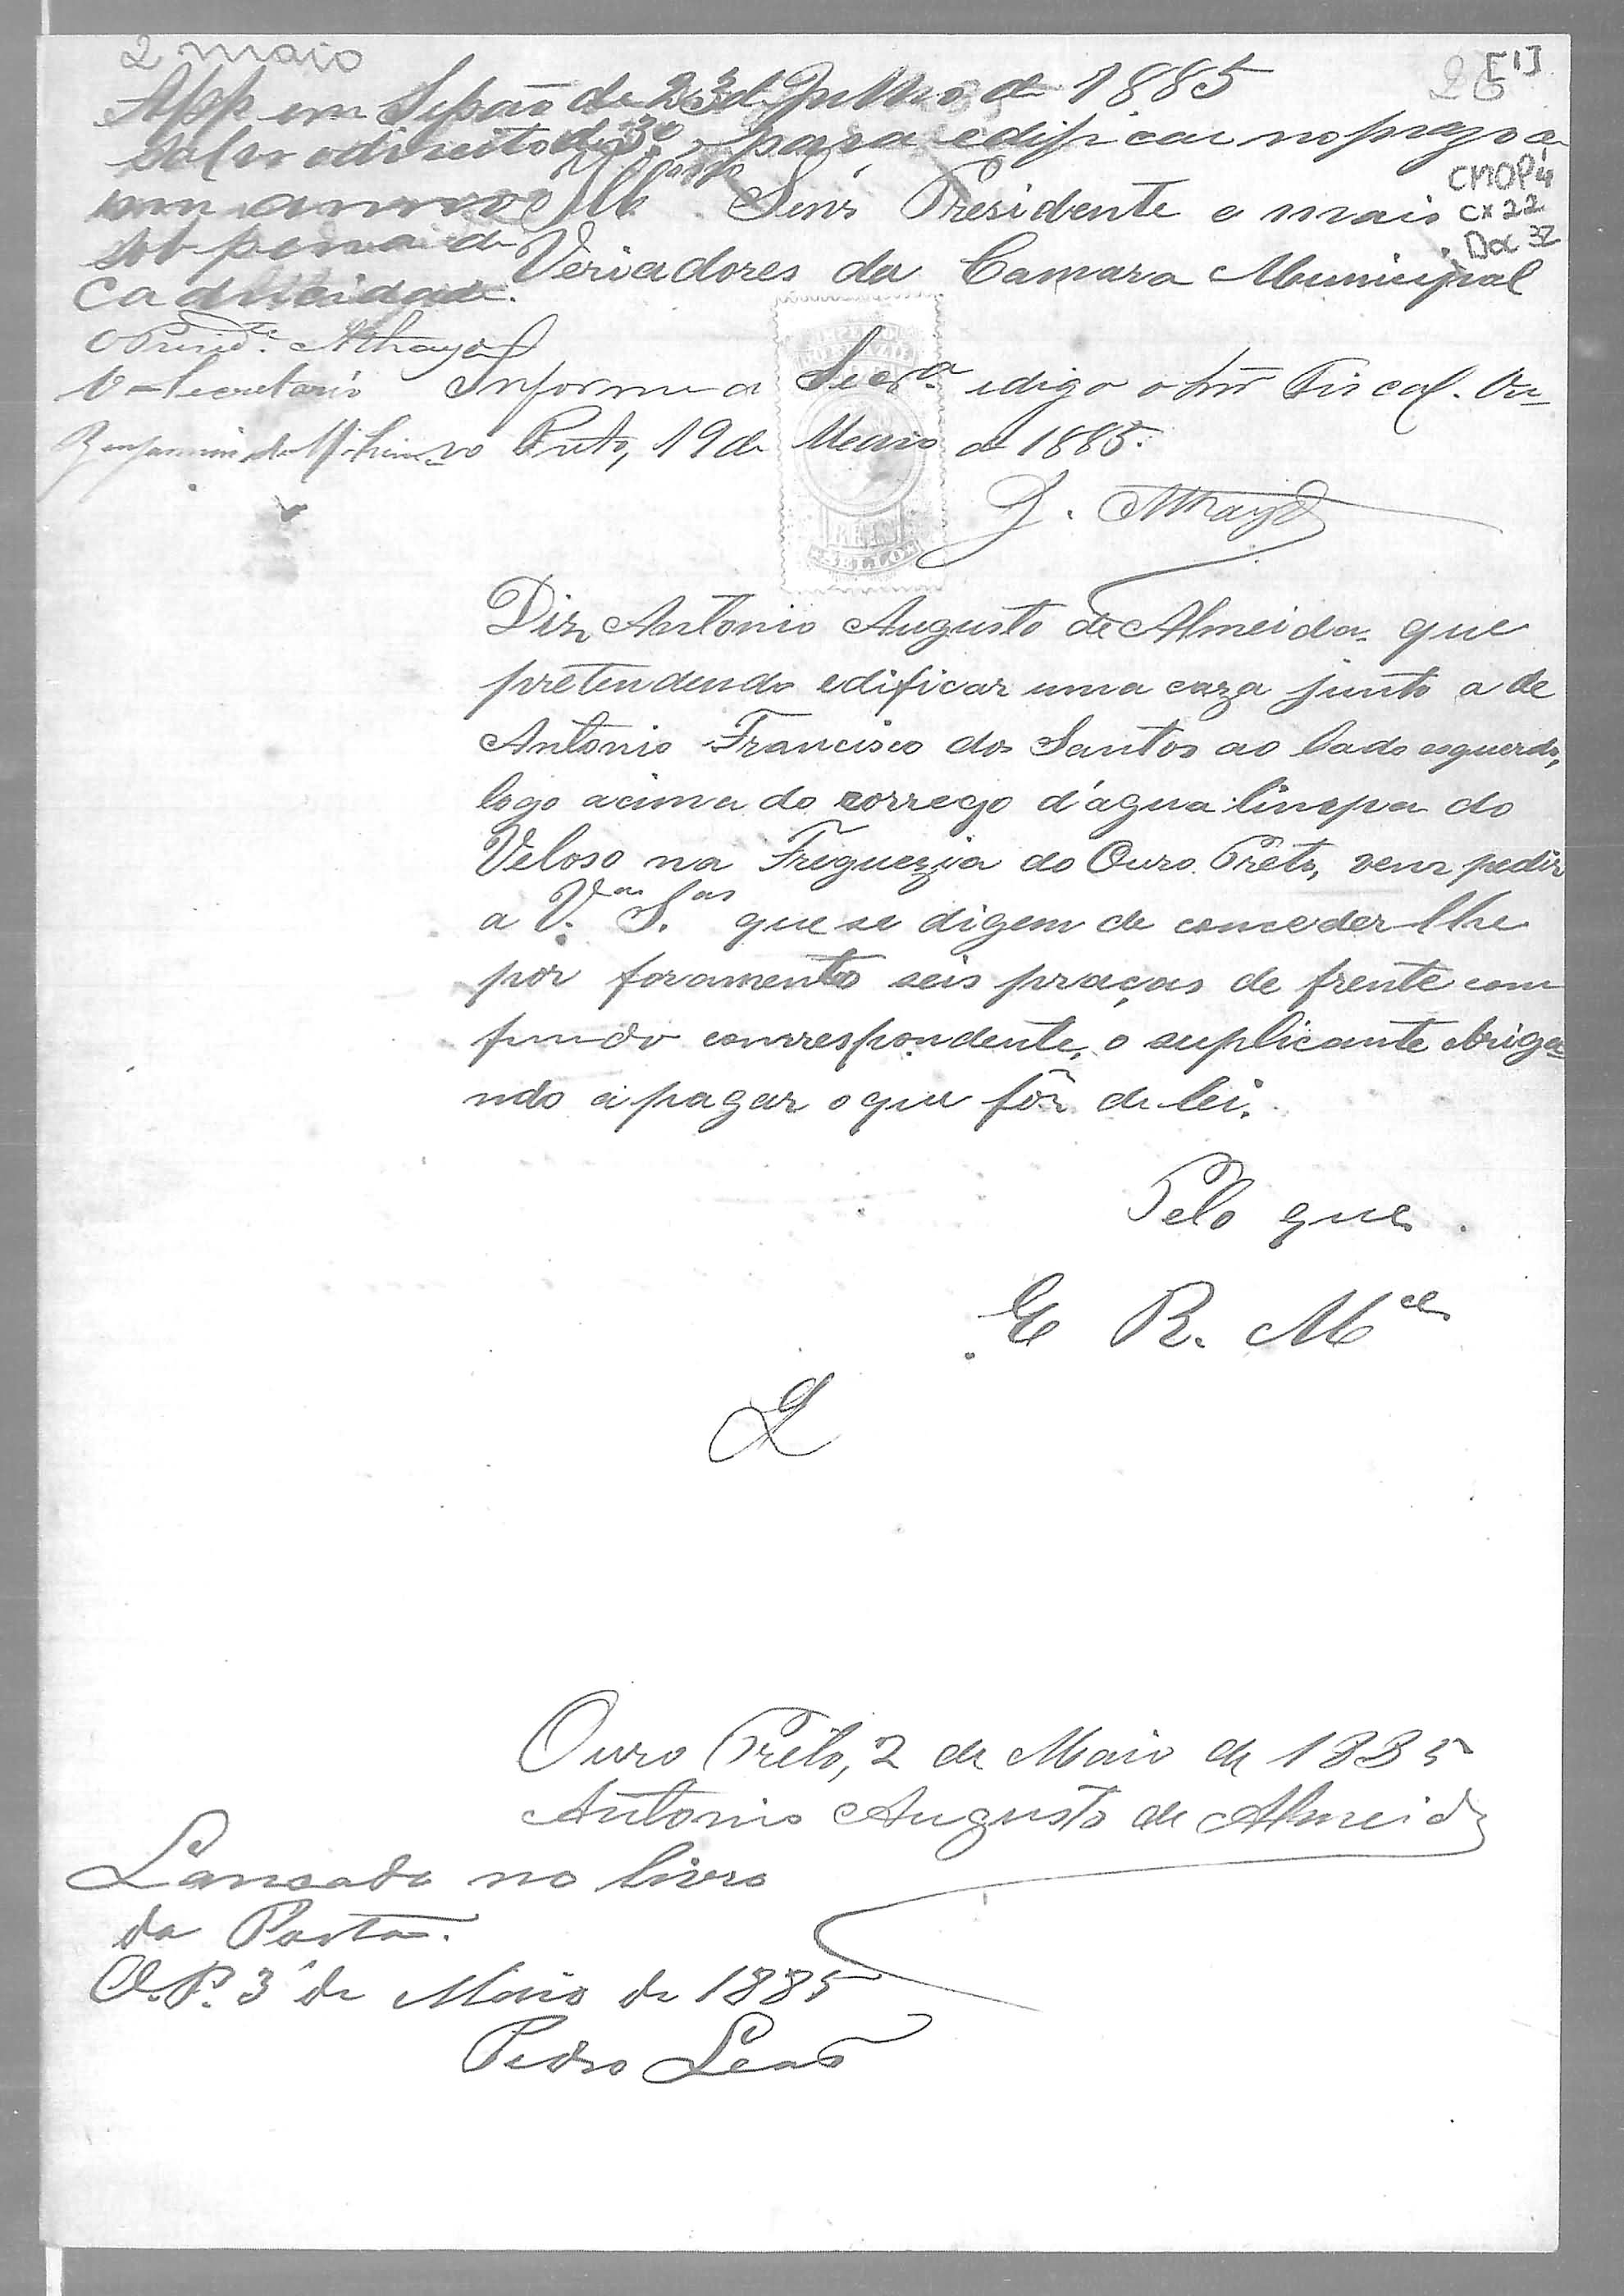 2 maio
[1]
26
App em Sessão de 23 de Julho de 1885
salvo o direito de 3º, para edificar no prazo de
um anno
sob pena de
caducidade.
O Presid.te Athayde
O Secretario
Benjamim de
CMOP
CX 22
Doc 32
Ill.mos Senr Presidente e mais
Veriadores da Camara Municipal
Informe a Secr.a e digo o Snr Fiscal. Ou-
ro Preto, 19 de Maio de 1885.
J. Athayde
REIS
SELLO
Diz Antonio Augusto de Almeida que
pretendendo edificar uma caza junto a de
Antonio Francisco dos Santos ao lado esquerdo,
logo acima do corrego d'agua limpa do
Veloso na Freguezia do Ouro Preto, vem pedir
a V.as S.as que se digem de conceder-lhe
por foramento seis praças de frente com
fundo comrrespondente, o suplicante obriga-
ndo a pagar o que fôr de lei.
Pelo que
E R. M.ce
Ouro Preto, 2 de Maio de 1885
Antonio Augusto de Almeida
Lancado no livro
da Porta.
O.P. 3 de Maio de 1885
Pedro Leão